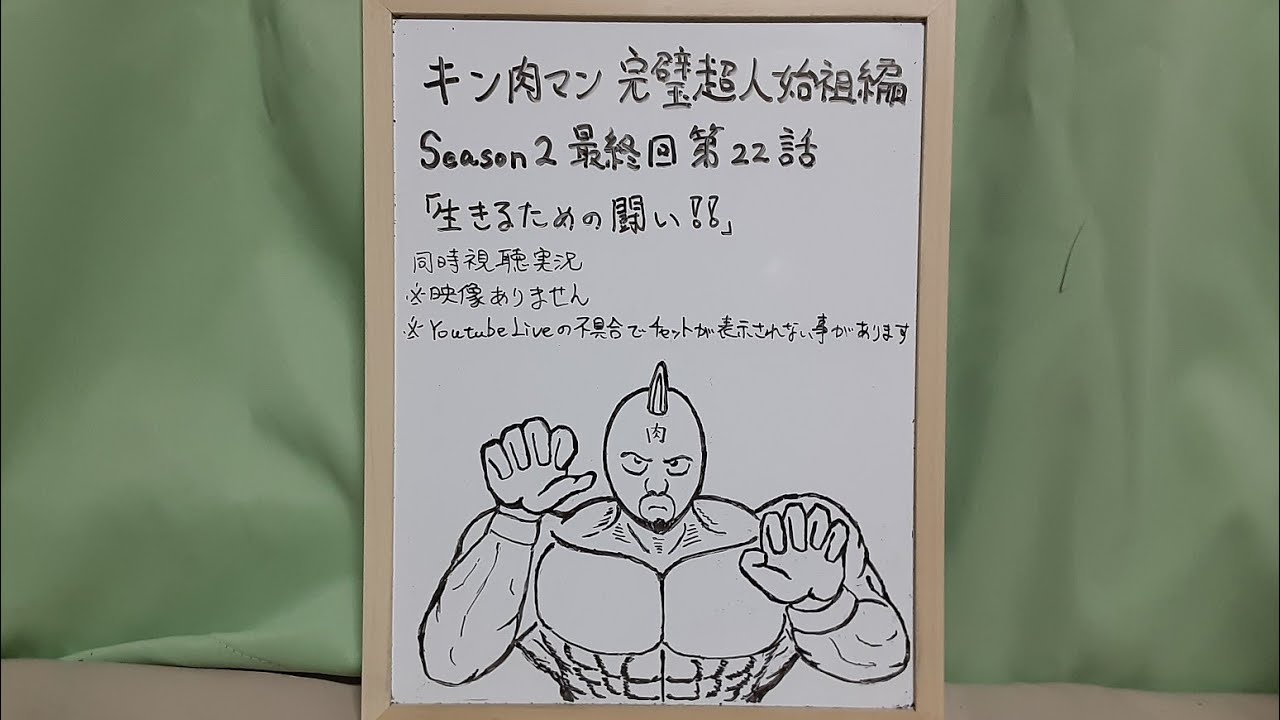 キン肉マン 完璧超人始祖編
Season2 最終回 第22話
「生きるための闘い!!」
同時視聴実況
※映像ありません
※YoutubeLiveの不具合でチャットが表示されない事があります
肉